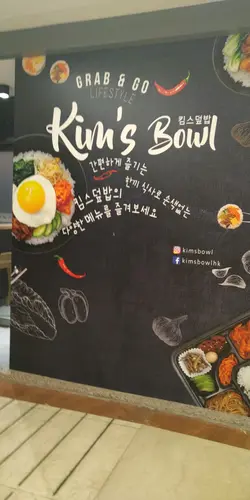 GRAB & GO
LIFESTYLE
킴스덮밥
Kim's Bowl
간편하게 즐기는
한끼 식사로 손색없는
킴스덮밥의
다양한 메뉴를 즐겨보세요
kimsbowl
kimsbowlhk